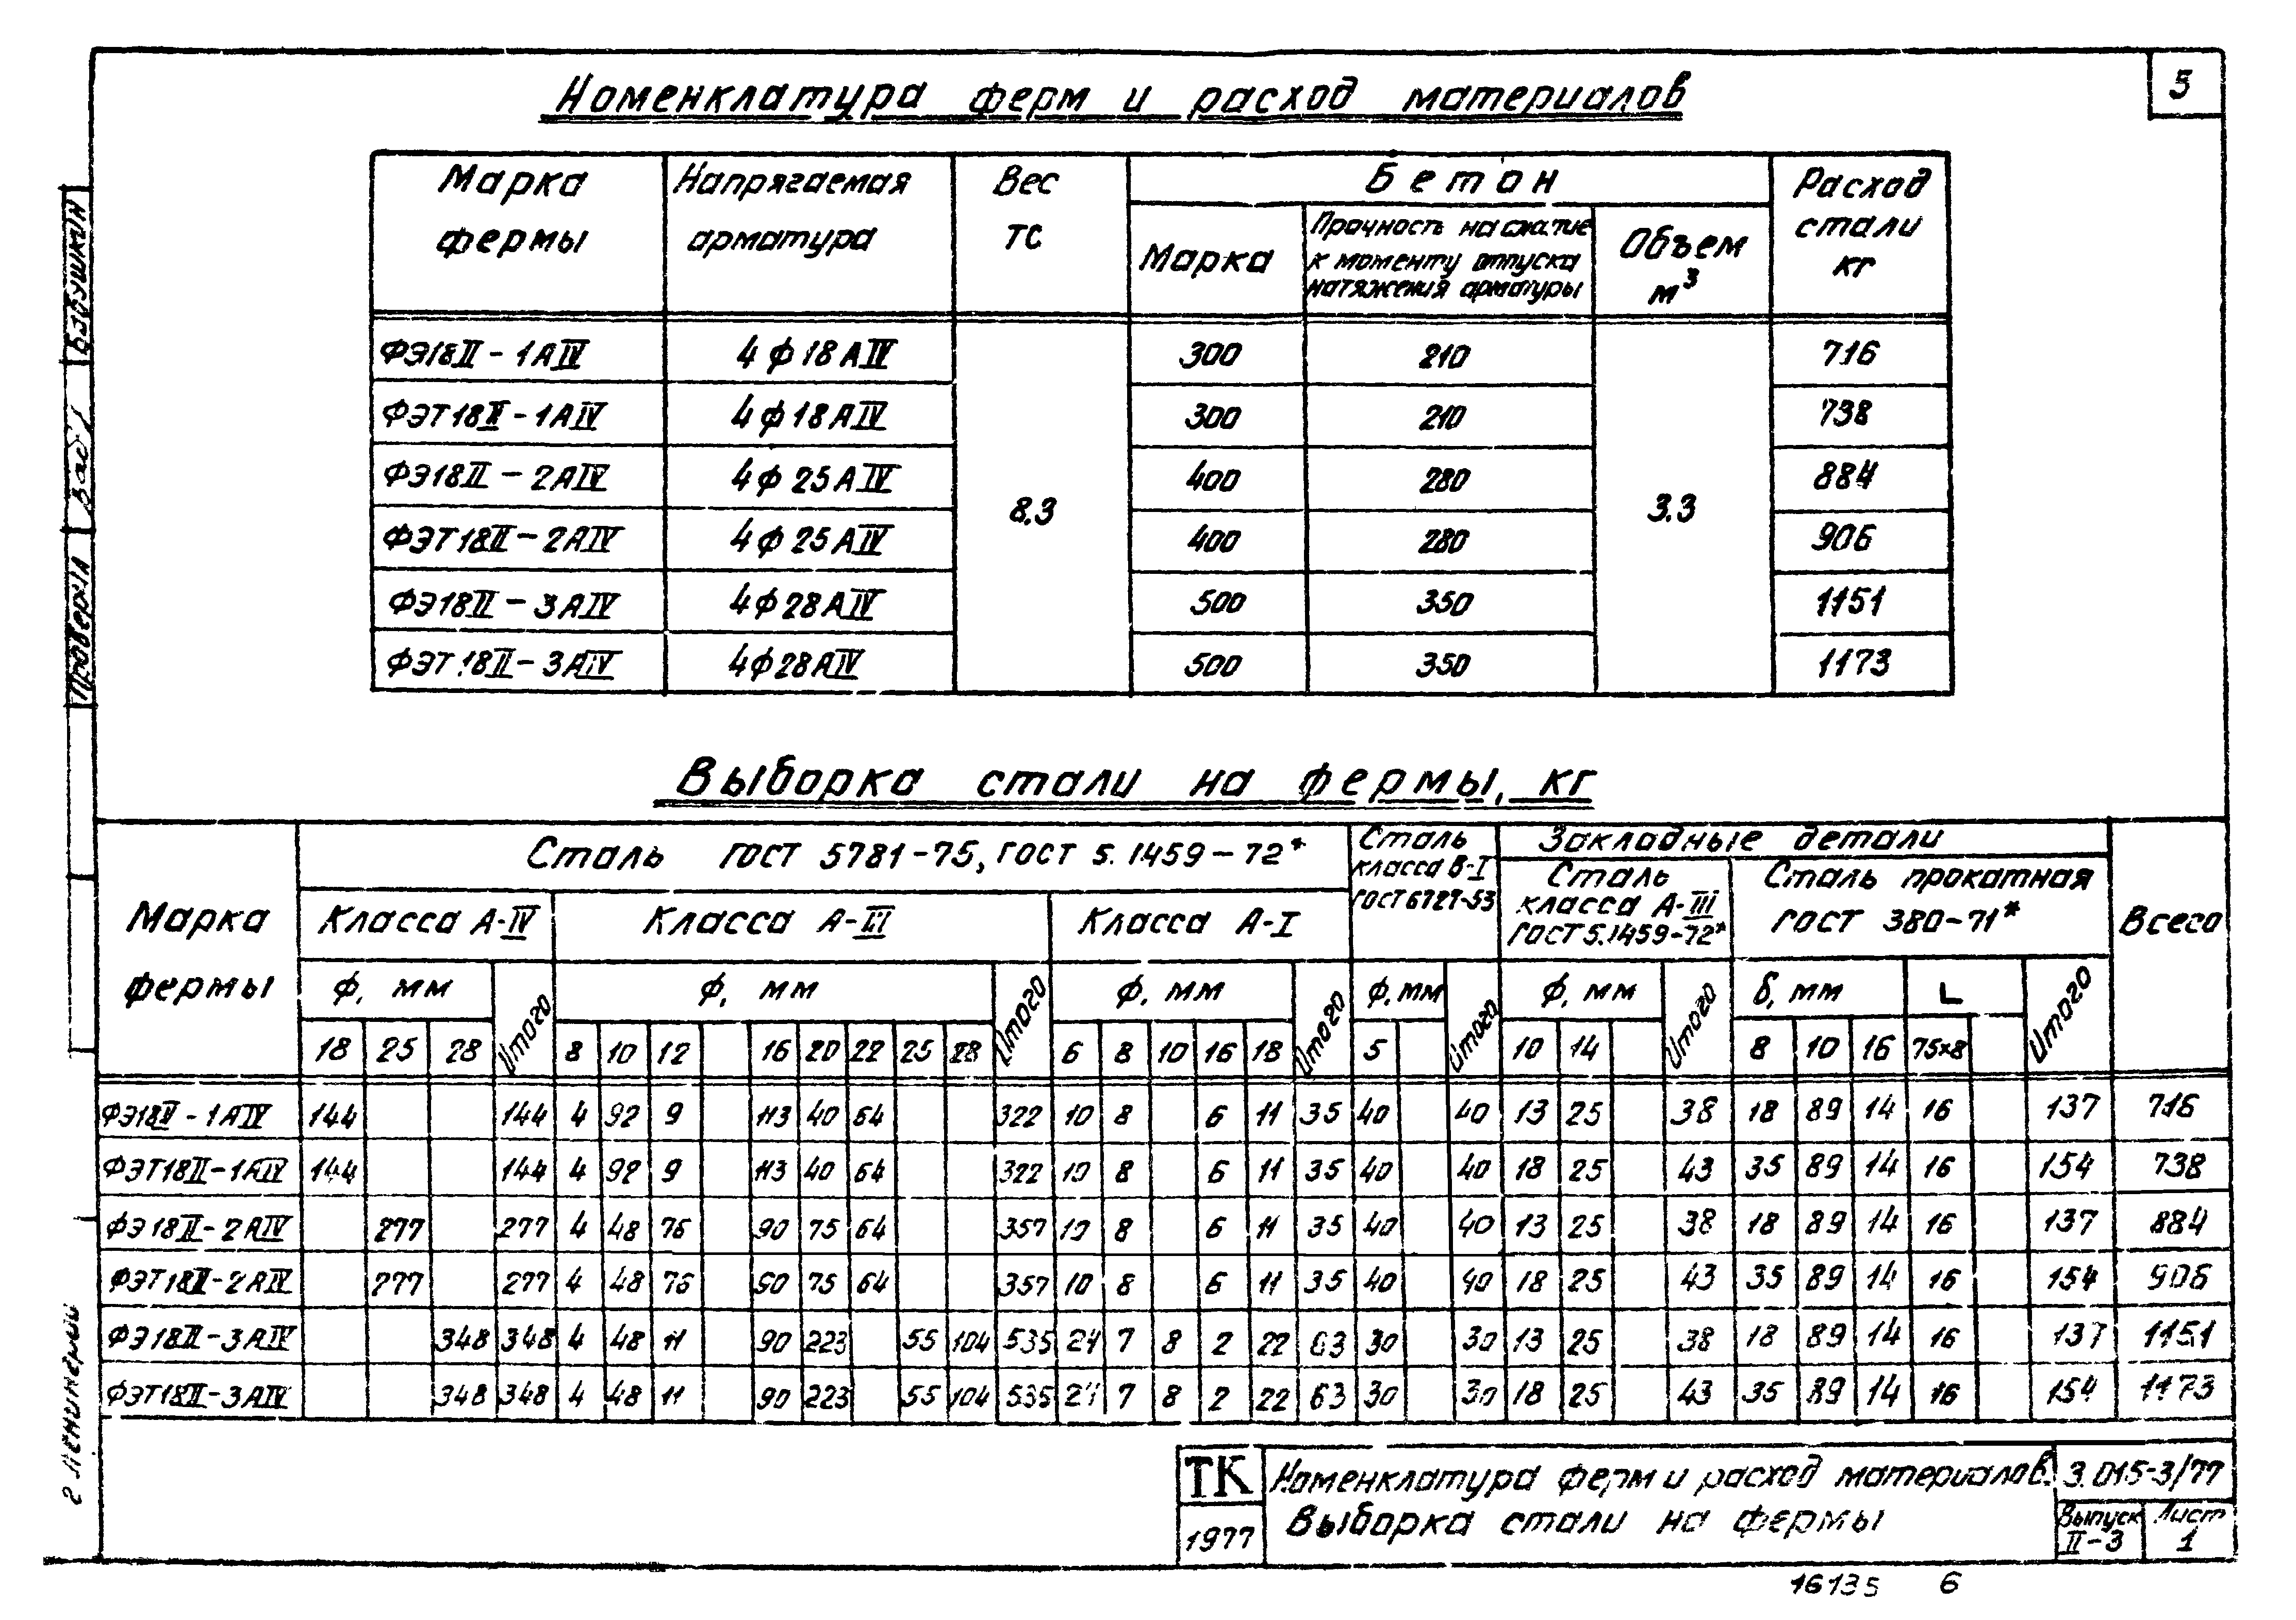 5
Номенклатура ферм и расход материалов
Марка фермы | Напрягаемая арматура | Вес тс | Бетон | Расход стали кг
Марка | Прочность на сжатие к моменту отпуска натяжения арматуры | Объем м³
ФЭ18II-1АIV | 4ф18АIV | 8.3 | 300 | 210 | 3.3 | 716
ФЭТ18II-1АIV | 4ф18АIV | 300 | 210 | 738
ФЭ18II-2АIV | 4ф25АIV | 400 | 280 | 884
ФЭТ18II-2АIV | 4ф25АIV | 400 | 280 | 906
ФЭ18II-3АIV | 4ф28АIV | 500 | 350 | 1151
ФЭТ18II-3АIV | 4ф28АIV | 500 | 350 | 1173
Выборка стали на фермы, кг
Марка фермы | Сталь ГОСТ 5781-75, ГОСТ 5.1459-72* | Сталь класса В-I ГОСТ 6727-53 | Закладные детали | Всего
Класса А-IV | Класса А-III | Класса А-I | Сталь класса А-III ГОСТ 5.1459-72* | Сталь прокатная ГОСТ 380-71*
ф, мм | Итого | ф, мм | Итого | ф, мм | Итого | ф, мм | Итого | ф, мм | Итого | δ, мм | L | Итого
18 | 25 | 28 | 8 | 10 | 12 | 16 | 20 | 22 | 25 | 28 | 6 | 8 | 10 | 16 | 18 | 5 | 10 | 14 | 8 | 10 | 16 | 75×8
ФЭ18II-1АIV | 144 | 144 | 4 | 92 | 9 | 113 | 40 | 64 | 322 | 10 | 8 | 6 | 11 | 35 | 40 | 40 | 13 | 25 | 38 | 18 | 89 | 14 | 16 | 137 | 716
ФЭТ18II-1АIV | 144 | 144 | 4 | 92 | 9 | 113 | 40 | 64 | 322 | 10 | 8 | 6 | 11 | 35 | 40 | 40 | 18 | 25 | 43 | 35 | 89 | 14 | 16 | 154 | 738
ФЭ18II-2АIV | 277 | 277 | 4 | 48 | 76 | 90 | 75 | 64 | 357 | 10 | 8 | 6 | 11 | 35 | 40 | 40 | 13 | 25 | 38 | 18 | 89 | 14 | 16 | 137 | 884
ФЭТ18II-2АIV | 277 | 277 | 4 | 48 | 76 | 90 | 75 | 64 | 357 | 10 | 8 | 6 | 11 | 35 | 40 | 40 | 18 | 25 | 43 | 35 | 89 | 14 | 16 | 154 | 906
ФЭ18II-3АIV | 348 | 348 | 4 | 48 | 11 | 90 | 223 | 55 | 104 | 535 | 24 | 7 | 8 | 2 | 22 | 63 | 30 | 30 | 13 | 25 | 38 | 18 | 89 | 14 | 16 | 137 | 1151
ФЭТ18II-3АIV | 348 | 348 | 4 | 48 | 11 | 90 | 223 | 55 | 104 | 535 | 24 | 7 | 8 | 2 | 22 | 63 | 30 | 30 | 18 | 25 | 43 | 35 | 89 | 14 | 16 | 154 | 1173
ТК
1977
Номенклатура ферм и расход материалов.
Выборка стали на фермы
3.015-3/77
Выпуск II-3
Лист 1
16135 6
Проверил